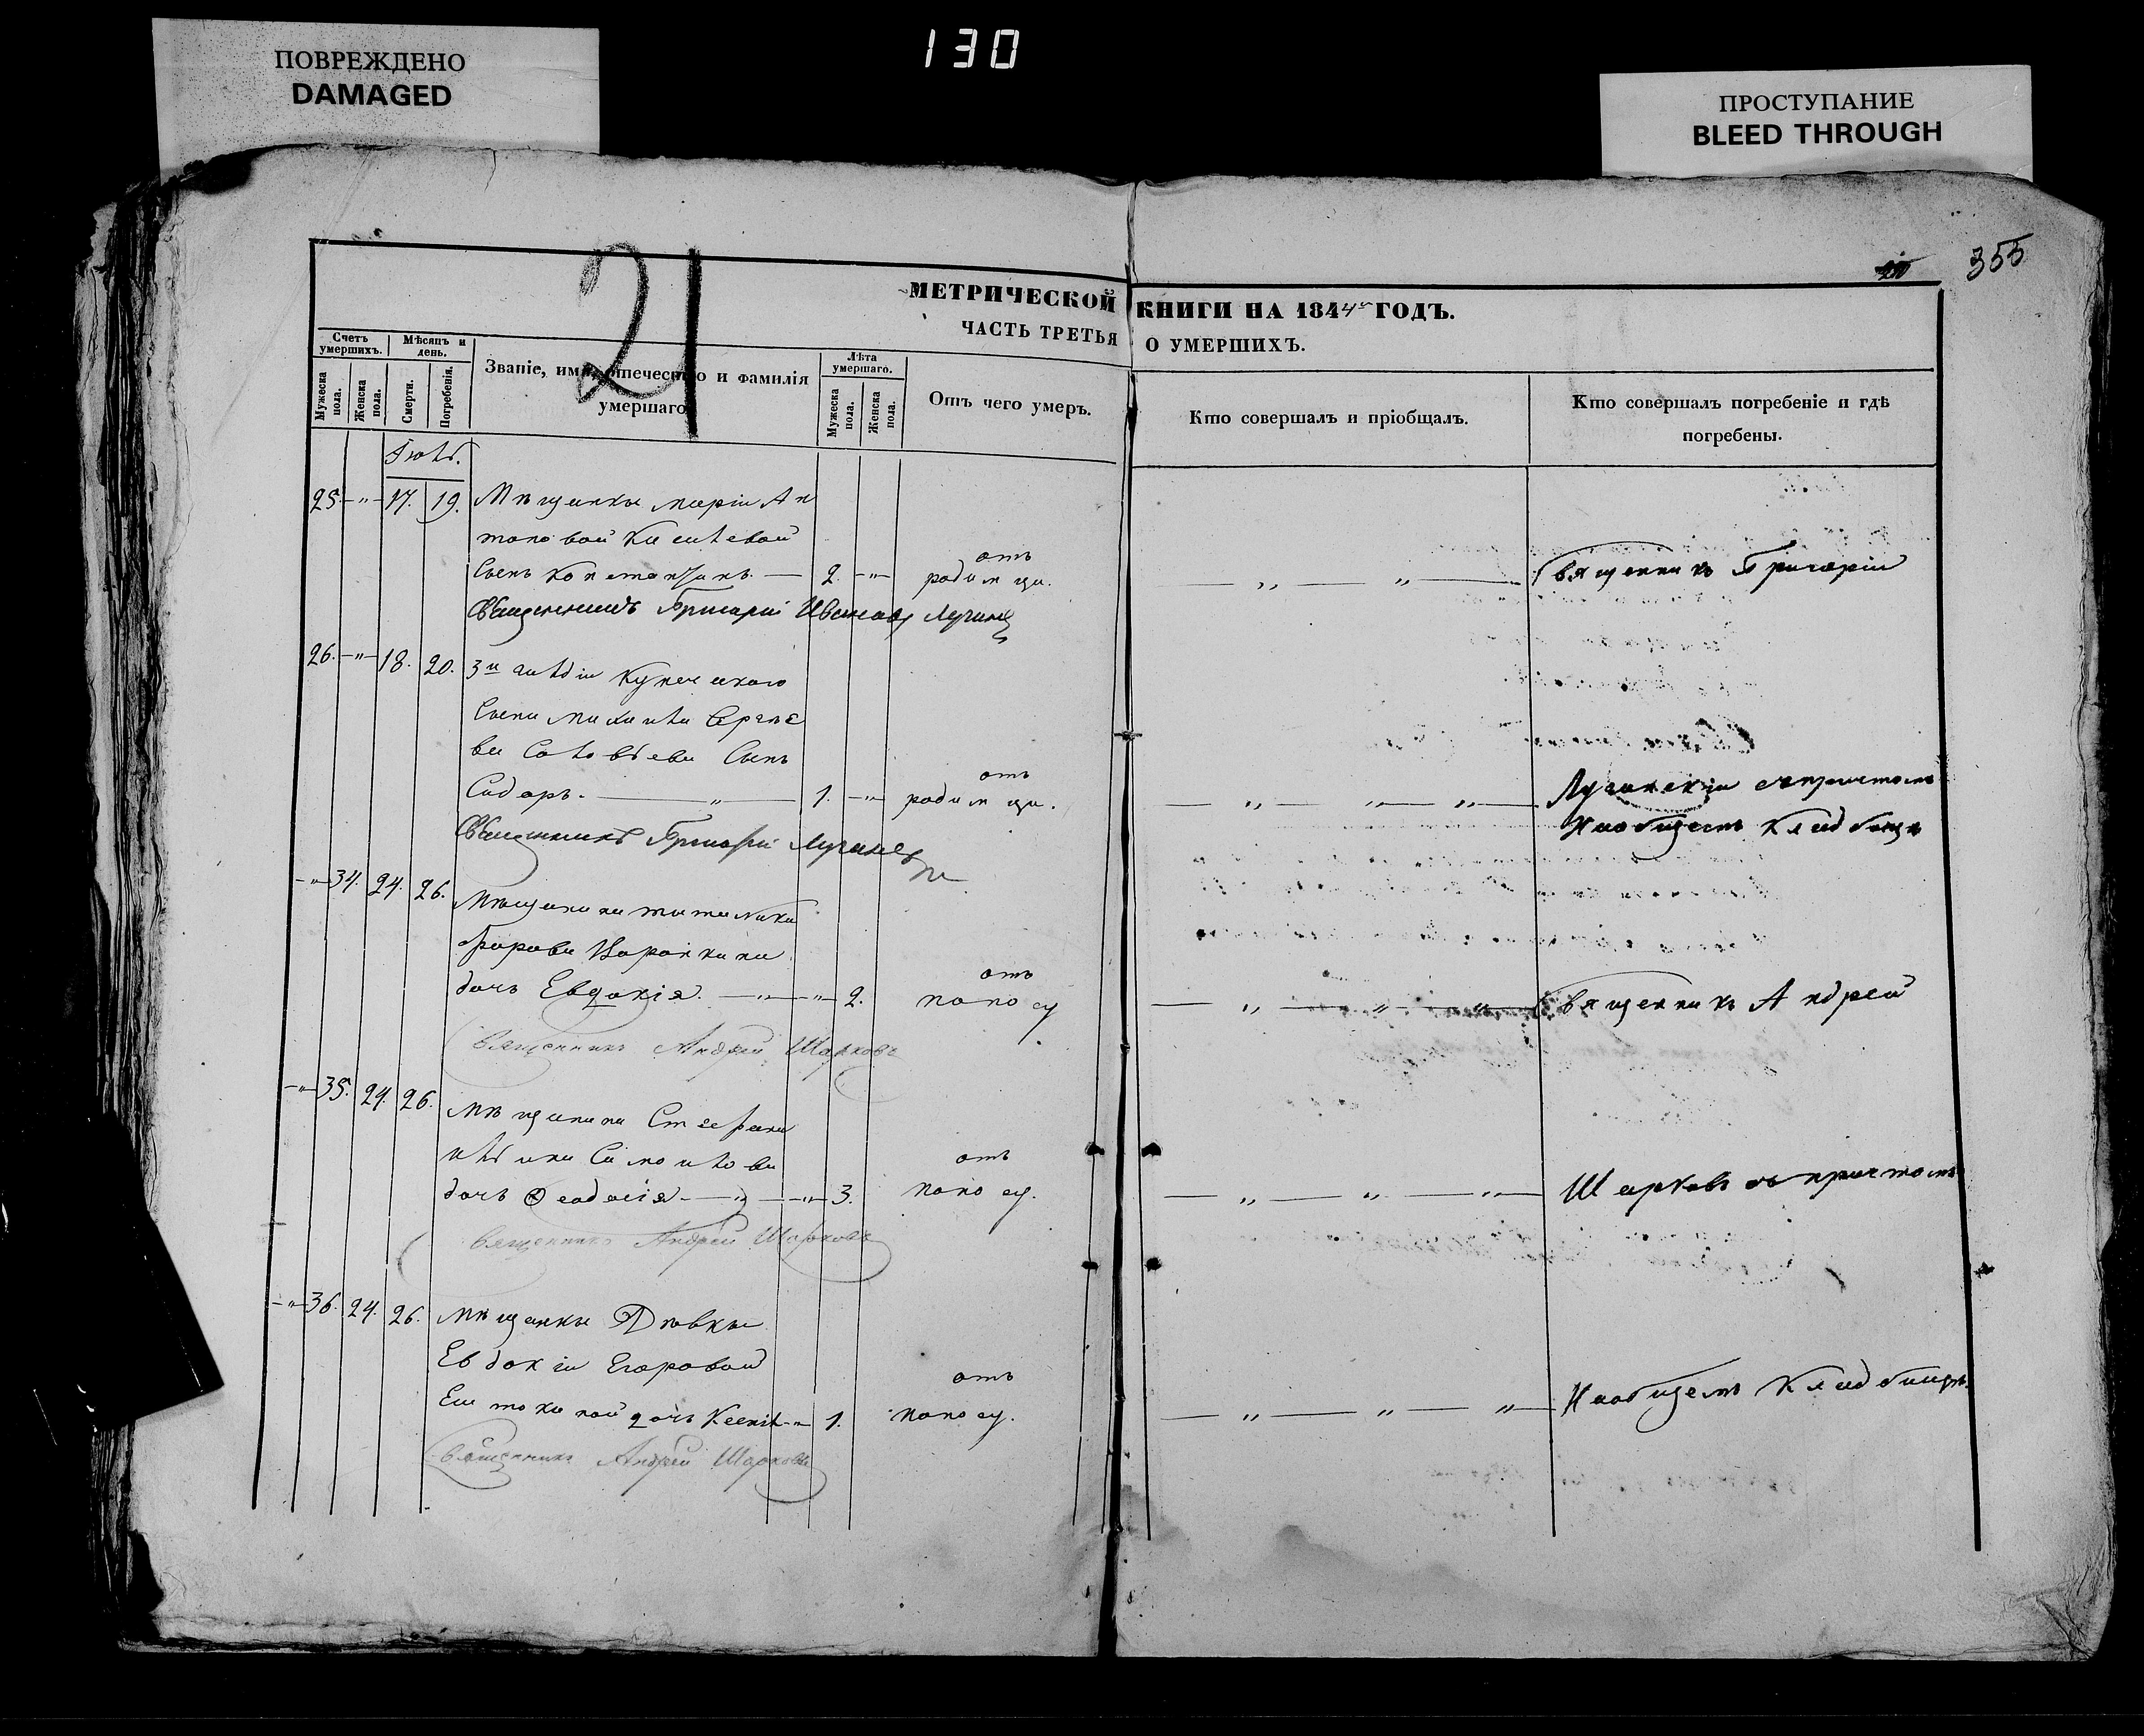 130
ПОВРЕЖДЕНО
DAMAGED
ПРОСТУПАНИЕ
BLEED THROUGH
355
21
МЕТРИЧЕСКОЙ КНИГИ НА 1844 ГОДЪ.
ЧАСТЬ ТРЕТЬЯ О УМЕРШИХЪ.
Счетъ умершихъ.
Мужеска пола.
Женска пола.
Мѣсяцъ и день.
Смерти.
Погребенія.
Званіе, имя, отечество и фамилія
умершаго
Лѣта умершаго.
Мужеска пола.
Женска пола.
Отъ чего умеръ.
Кто совершалъ и пріобщалъ.
Кто совершалъ погребеніе и гдѣ
погребены.
25. -"- 17. 19. Мѣщанки Маріи Ан
тоновой
сынъ Константинъ. — 2. -"- отъ родимца. Священникъ Григорій
Священникъ Григорій Ивановъ Лучинскій
26. -"- 18. 20. 3й гильдіи купеческаго
сына Михаила Сергѣе
ва Соловьева сынъ
Сидоръ. — " — 1. -"- отъ родимца. Лучинскій съ причтомъ
На общемъ кладбищѣ
Священникъ Григорій Лучинскій
-"- 34. 24. 26. Мѣщанина
дочь Евдокія. — " — " — 2. отъ поносу Священникъ Андрей
Священникъ Андрей Шарковъ
-"- 35. 24. 26. Мѣщанина Стефана
Ильина Самойлова
дочь Ѳеодосія — " — " — 3. отъ поносу. Шарковъ съ причтомъ
Священникъ Андрей Шарковъ
-"- 36. 24. 26. Мѣщанки Дѣвки
Евдокіи Егоровой
дочь — " — 1. отъ поносу. На общемъ кладбищѣ.
Священникъ Андрей Шарковъ